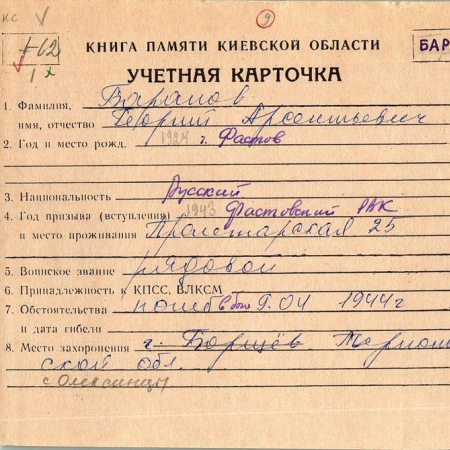 кс V
9
+62
1 х
КНИГА ПАМЯТИ КИЕВСКОЙ ОБЛАСТИ
БАР
УЧЕТНАЯ КАРТОЧКА
1. Фамилия, Баранов
имя, отчество Георгий Арсентьевич
2. Год и место рожд. 1924 г. Фастов
3. Национальность Русский
4. Год призыва (вступления) 1943 Фастовский РВК
и место проживания Пролетарская 25
5. Воинское звание рядовой
6. Принадлежность к КПСС. ВЛКСМ
7. Обстоятельства погиб в бою 9.04 1944г
и дата гибели
8. Место захоронения г. Борщёв Терноп
ской обл.
с Олексинцы